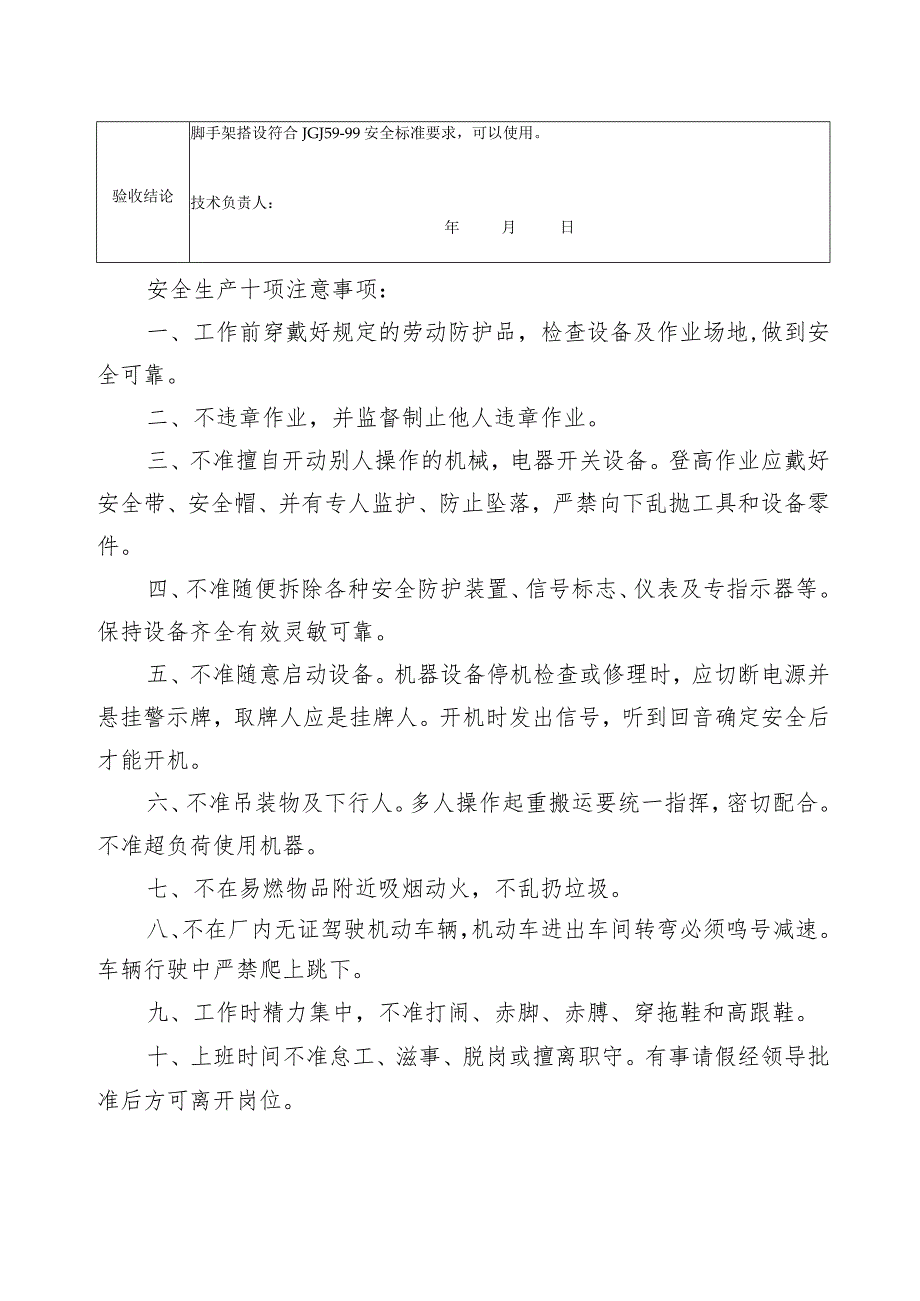 脚手架搭设符合 JGJ59-99 安全标准要求，可以使用。
验收结论
技术负责人：
年 月 日
安全生产十项注意事项：
一、工作前穿戴好规定的劳动防护品，检查设备及作业场地,做到安
全可靠。
二、不违章作业，并监督制止他人违章作业。
三、不准擅自开动别人操作的机械，电器开关设备。登高作业应戴好
安全带、安全帽、并有专人监护、防止坠落，严禁向下乱抛工具和设备零
件。
四、不准随便拆除各种安全防护装置、信号标志、仪表及专指示器等。
保持设备齐全有效灵敏可靠。
五、不准随意启动设备。机器设备停机检查或修理时，应切断电源并
悬挂警示牌，取牌人应是挂牌人。开机时发出信号，听到回音确定安全后
才能开机。
六、不准吊装物及下行人。多人操作起重搬运要统一指挥，密切配合。
不准超负荷使用机器。
七、不在易燃物品附近吸烟动火，不乱扔垃圾。
八、不在厂内无证驾驶机动车辆,机动车进出车间转弯必须鸣号减速。
车辆行驶中严禁爬上跳下。
九、工作时精力集中，不准打闹、赤脚、赤膊、穿拖鞋和高跟鞋。
十、上班时间不准怠工、滋事、脱岗或擅离职守。有事请假经领导批
准后方可离开岗位。